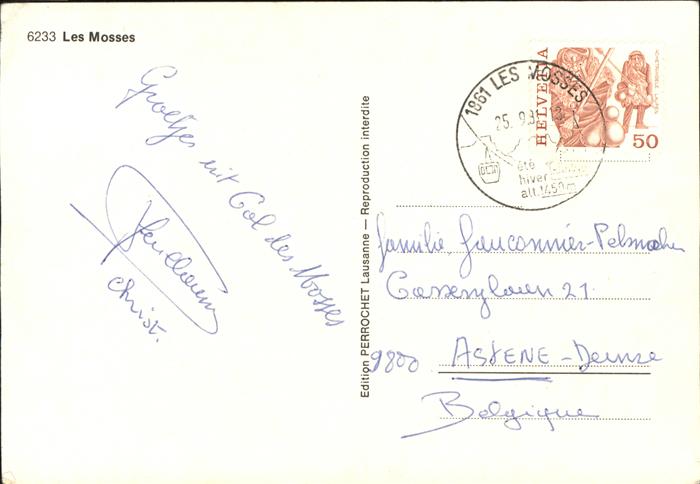 6233 Les Mosses
Groetjes uit Col des Mosses
Christ.
Edition PERROCHET Lausanne — Reproduction interdite
HELVETIA
50
1861 LES MOSSES
25. 9.8
été
hiver
alt. 1450 m
Familie Fauconnier-Pelsmaeker
21.
9800 ASTENE-Deinze
Belgique